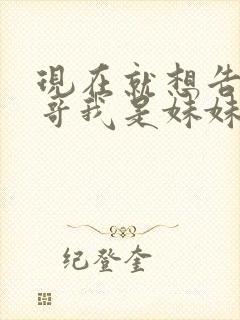 現在就想告
哥我是妹妹
纪登奎